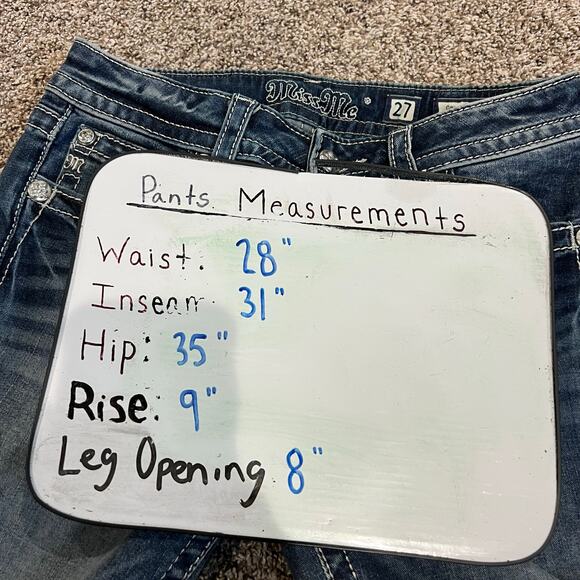 Miss Me
27
M
Pants Measurements
Waist: 28"
Inseam: 31"
Hip: 35"
Rise: 9"
Leg Opening: 8"